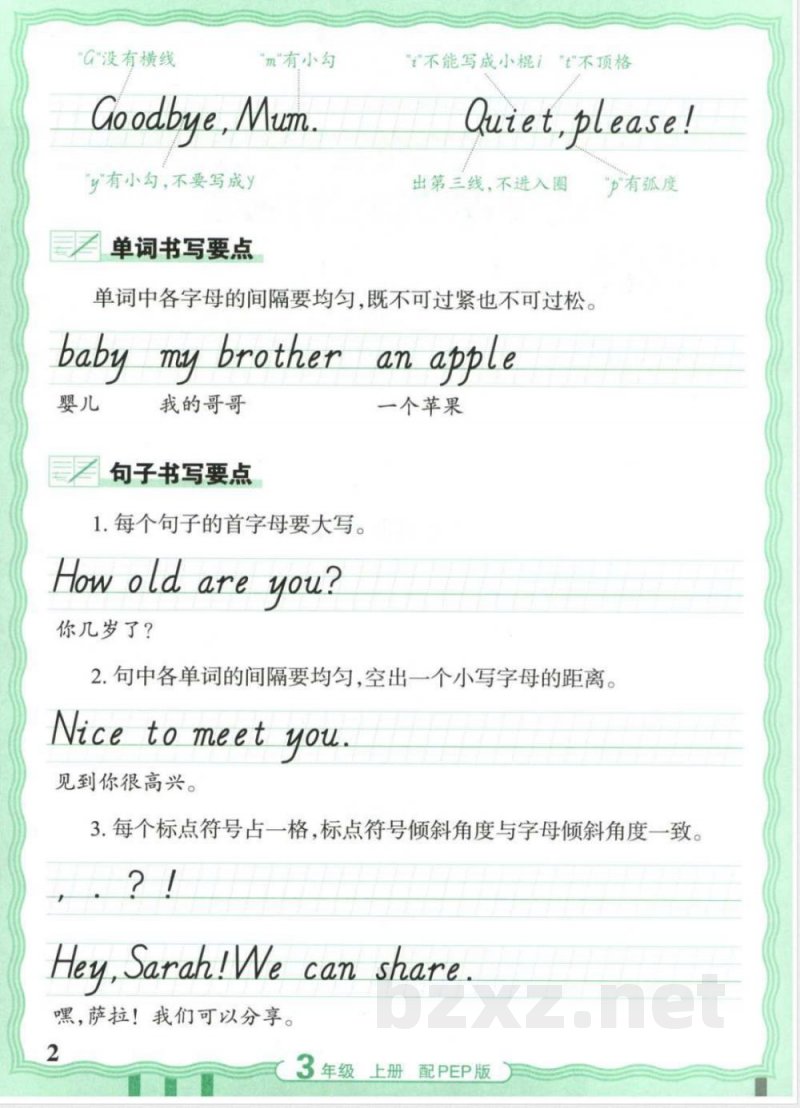 "G"没有横线 "m"有小勾 "i"不能写成小棍i "t"不顶格
Goodbye, Mum. Quiet, please!
"y"有小勾,不要写成y 出第三线,不进入圈 "p"有弧度
单词书写要点
单词中各字母的间隔要均匀,既不可过紧也不可过松。
baby my brother an apple
婴儿 我的哥哥 一个苹果
句子书写要点
1. 每个句子的首字母要大写。
How old are you?
你几岁了?
2. 句中各单词的间隔要均匀,空出一个小写字母的距离。
Nice to meet you.
见到你很高兴。
3. 每个标点符号占一格,标点符号倾斜角度与字母倾斜角度一致。
, . ? !
Hey, Sarah! We can share.
嘿,萨拉! 我们可以分享。
bzxz.net
2
3年级 上册 配PEP版